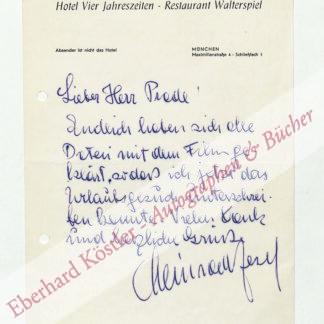 Hotel Vier Jahreszeiten - Restaurant Walterspiel
Absender ist nicht das Hotel
MÜNCHEN
Maximilianstraße 4 - Schließfach 1
Lieber Herr Prade!
Endlich haben sich die
Daten mit dem Film ge
klärt, sodaß ich jetzt das
Urlaubsgesuch unterschrei-
ben konnte. Vielen Dank
und herzliche Grüße
Eberhard Köstler - Autographen & Bücher